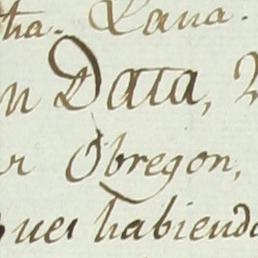 tha. Lana.
n Data,
r Obregon,
ues habiendo